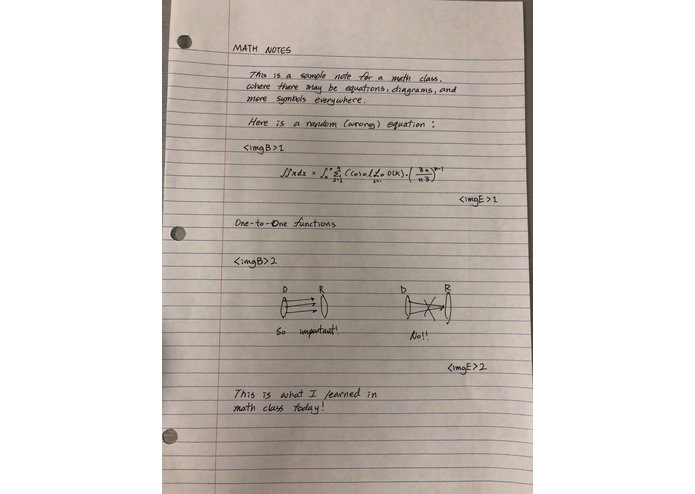 MATH NOTES
This is a sample note for a math class,
where there may be equations, diagrams, and
more symbols everywhere.
Here is a random (wrong) equation:
<imgB>1
∬xdx =
<imgE>1
One-to-One functions
<imgB>2
D R D R
So important! No!!
<imgE>2
This is what I learned in
math class today!